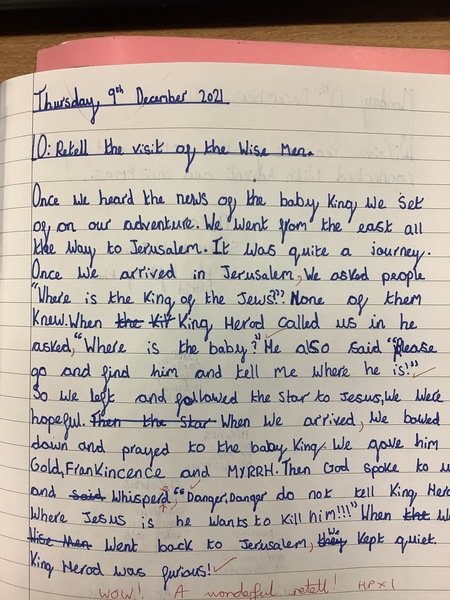 Thursday, 9th December 2021
LO: Retell the visit of the Wise Men.
Once we heard the news of the baby King we set
of on our adventure. We went from the east all
the way to Jerusalem. It was quite a journey.
Once we arrived in Jerusalem, We asked people
"Where is the King of the Jews?" None of them
knew. When the Kit King Herod called us in he
asked, "Where is the baby?" He also said "Please
go and find him and tell me where he is!"
So we left and followed the star to Jesus, we were
hopeful. Then the star When we arrived, we bowed
down and prayed to the baby King. We gave him
Gold, Frankincence and MYRRH. Then God spoke to u
and said whisperd, "Danger, Danger do not tell King Hero
where Jesus is he wants to kill him!!!" When the w
Wise Men went back to Jerusalem, they We kept quiet.
King Herod was furious!
WOW! A wonderful retell! HPx1